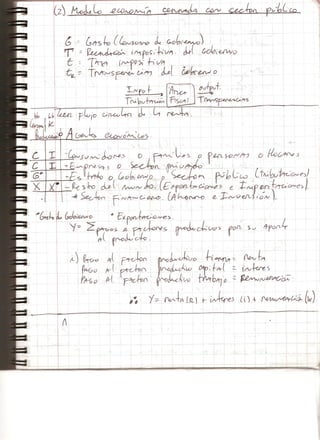 (2) Modelo economía cerrada con sector público
G : Gasto (Consumo de Gobierno)
T : Recaudación impositiva del Gobierno
t : Tasa impositiva
tR = Transferencias del Gobierno
Input → Área → output
Tributación Fiscal Transferencias
flujo circular de la renta.
Agentes económicos
C I - Consumidores o familias o personas o Hogares
C I - Empresas o sector privado
G° - Estado o Gobierno o Sector Público (tributaciones)
X X - Resto del Mundo: (Exportaciones e Importaciones)
* Sector Financiero. (Ahorro e Inversión).
°Gasto de Gobierno ° Exportaciones
Y = Σ pagos a factores productivos por su aporte
al producto.
Pago al factor productivo tierra = Renta
Pago al factor productivo capital = interes
Pago al factor productivo trabajo = Remuneración
∴ Y = renta (R) + interes (i) + remuneración (w)